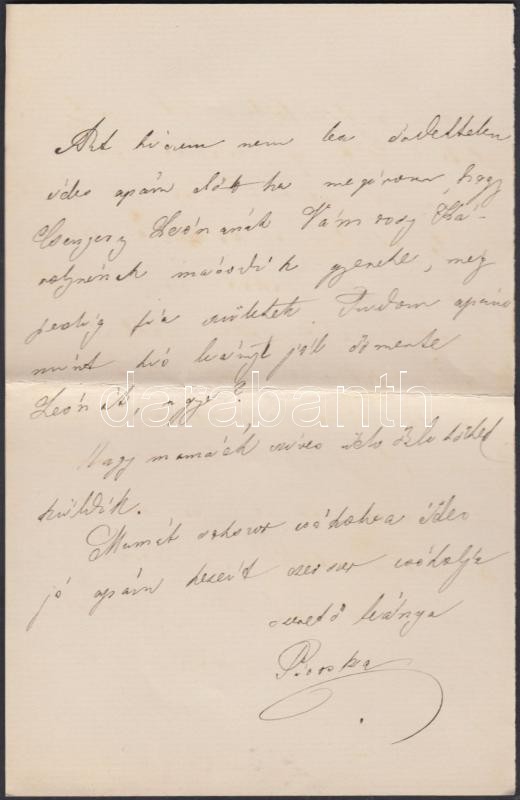 Azt hiszem nem lesz érdektelen
édes apám előtt ha megírom, hogy
Csengery Leónának Vámossy Ká-
rolynénak második gyereke, még
pedig fia született. Tudom apám
mint kis leányt jól ismerte
Leónát, ugye?
Nagy mamáék szíves üdvözletöket
küldik.
Mamát sokszor csókolva édes
jó apám kezeit ezerszer csókolja
szerető leánya
Piroska
darabanth